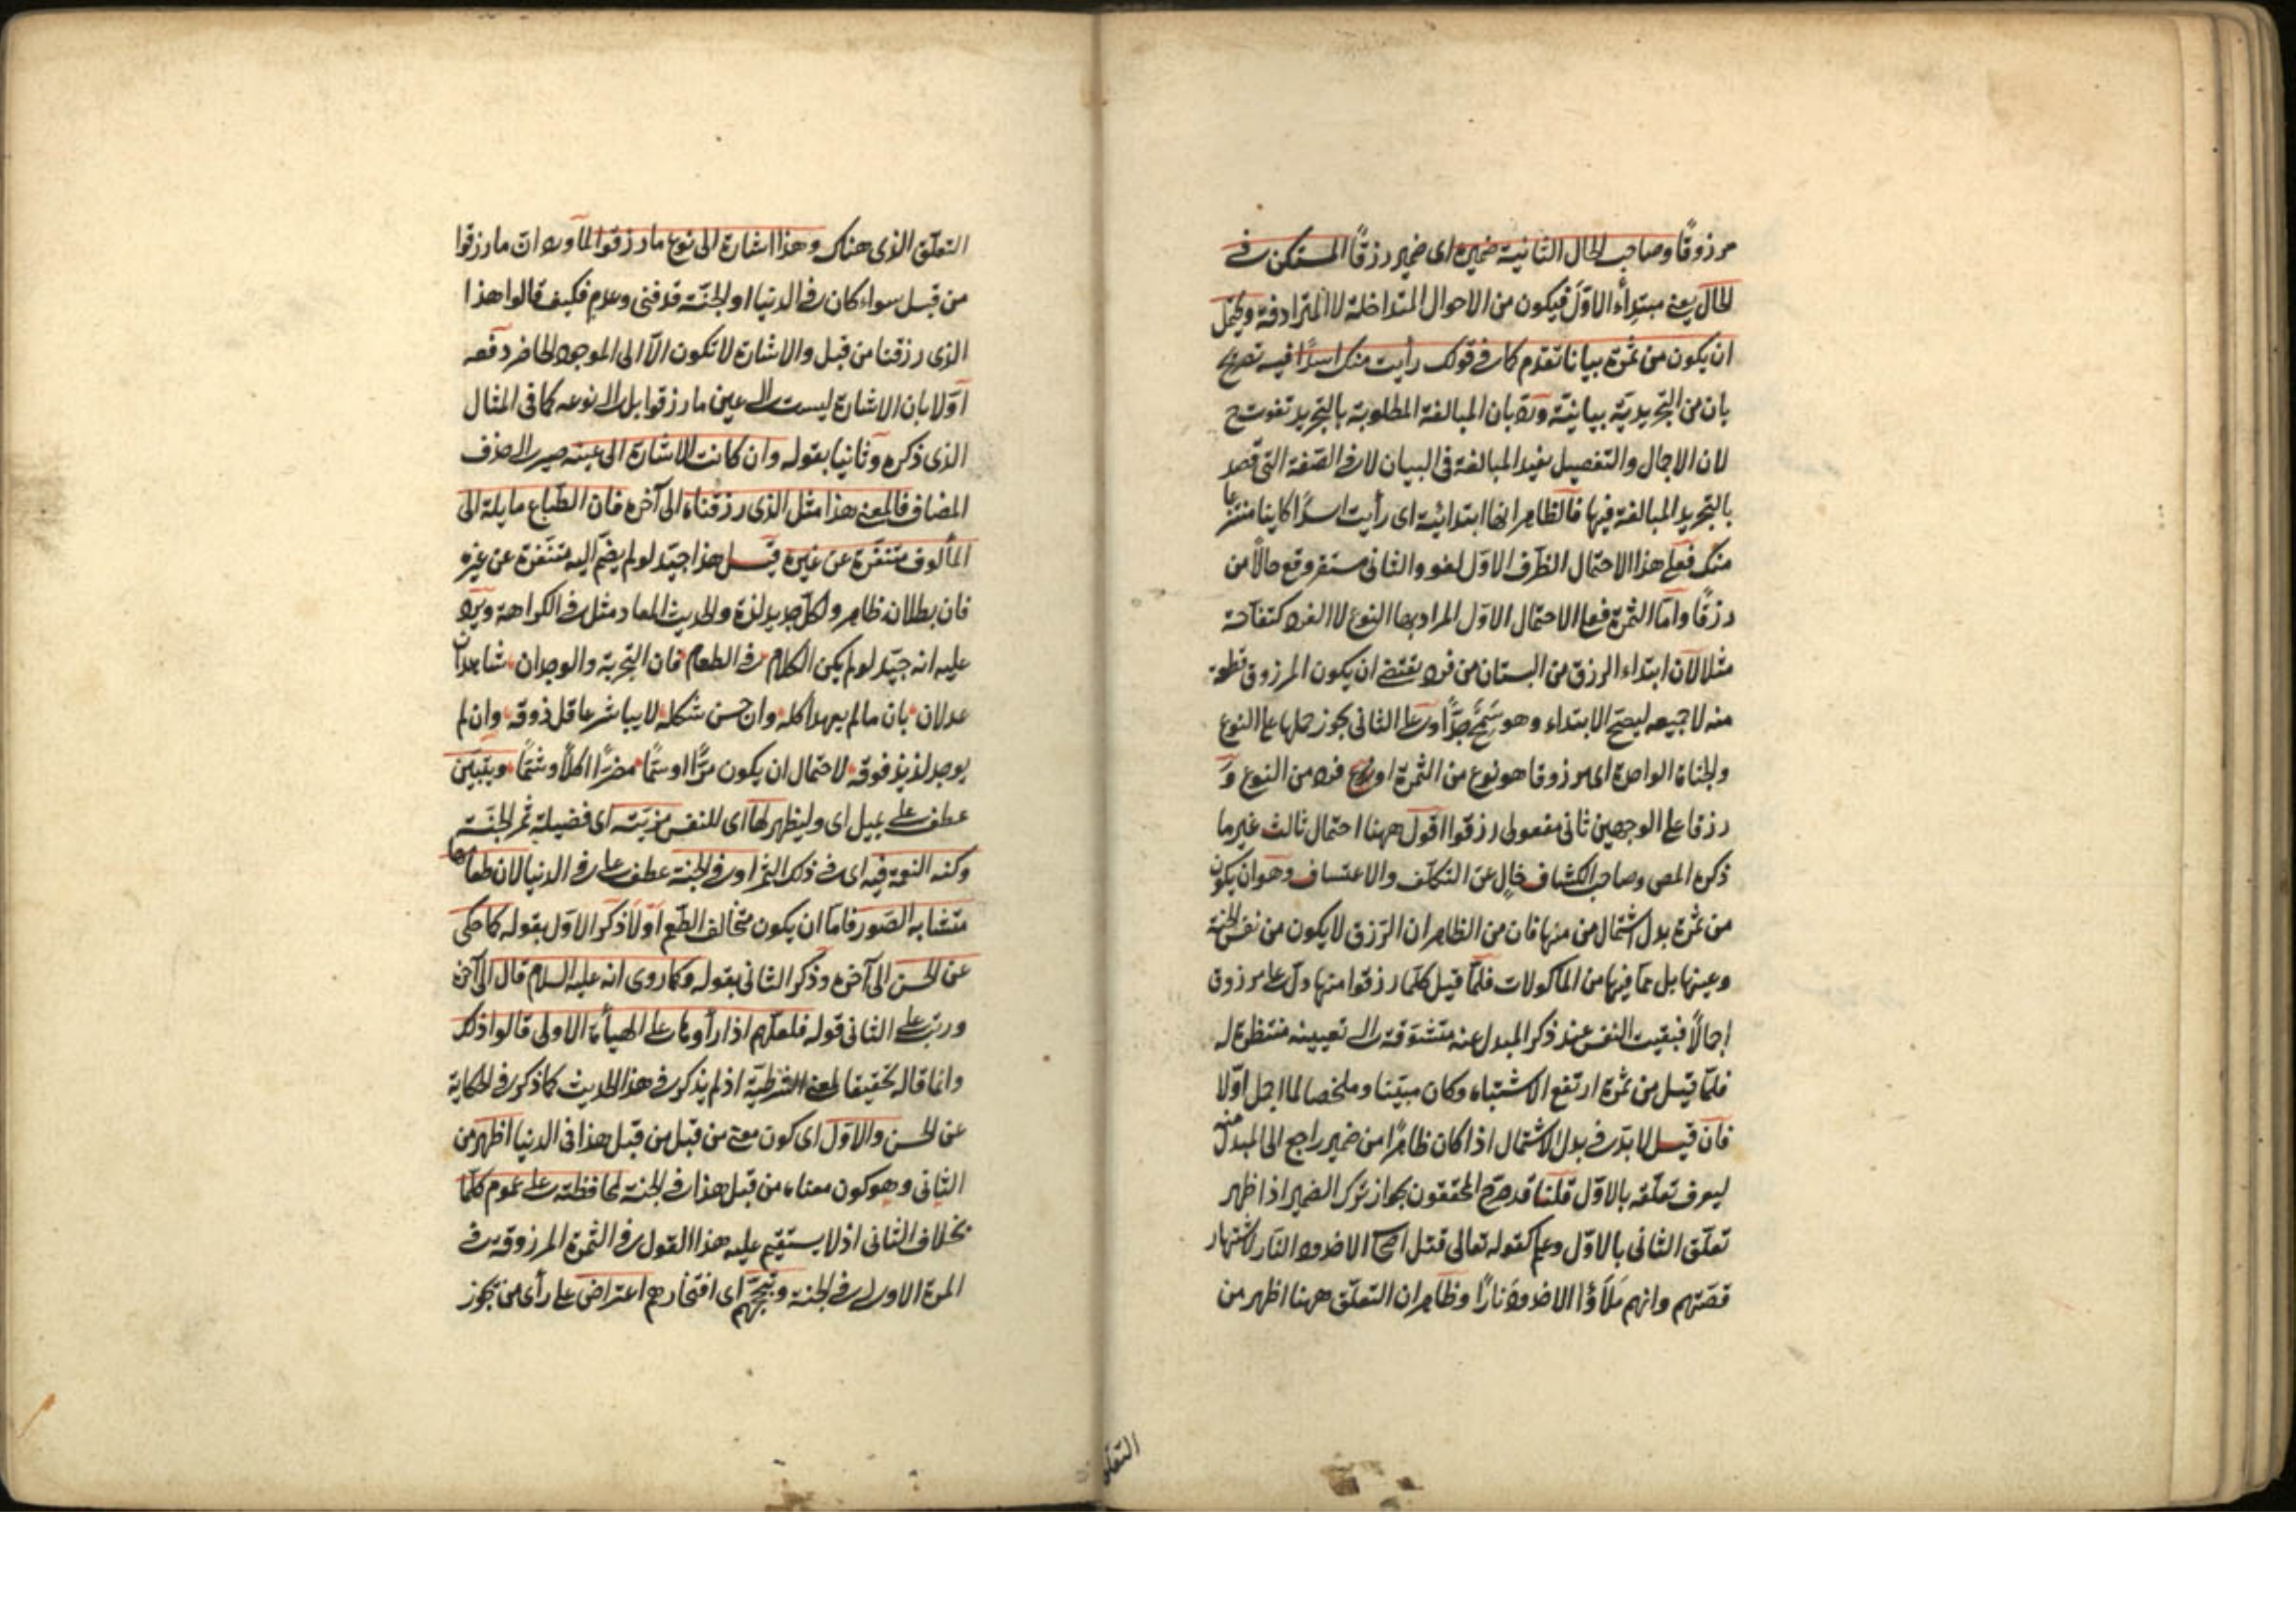 مرزوقًا وصاحب الحال الثانية ضميره اى ضمير رزقًا المستكن فے
الحال يعنے مبتدأ الاوّل فيكون من الاحوال المتداخلة لا المترادفة ويحتمل
ان يكون من ثمرة بيانا تقدم كما فے قولك رأيت منك اسدًا فيه تصريح
بان من التجريديّة بيانيّة وردّ بان المبالغة المطلوبة بالتجريد تفوت ح
لان الاجمال والتفصيل يفيد المبالغة فى البيان لا فے الصّفة التى قصد
بالتجريد المبالغة فيها فالظاهر انها ابتدائيّة اى رأيت اسدًا كاينا منتزعا
منك فعلے هذا الاحتمال الظرف الاوّل لغو والثانى مستقر وقع حالًا من
رزقًا وامّا الثمرة فعلے الاحتمال الاوّل المراد بها النوع لا الفرد كتفّاحة
مثلا لانّ ابتداء الرزق من البستان من فرد يقتضے ان يكون المرزوق قطعة
منه لا جميعه ليصحّ الابتداء وهو سَمِجٌ جدًّا وعلے الثانى يجوز حملها علے النوع
والجناة الواحدة اى مرزوقا هو نوع من الثمرة او فرد من النوع وَ
رزقا علے الوجهين ثانى مفعولى رزقوا اقول ههنا احتمال ثالث غير ما
ذكره المص وصاحب الكشاف خالٍ عن التكلّف والاعتساف وهو ان يكون
من ثمرة بدل اشتمال من منها فان من الظاهر ان الرّزق لا يكون من نفس الجنة
وعينها بل ممّا فيها من المأكولات فلمّا قيل كلّما رزقوا منها دلّ علے مرزوق
اجمالًا فبقيت النفس عند ذكر المبدل عنه متشوّقة الے تعيينه منتظرة له
فلمّا قيل من ثمرة ارتفع الاشتباه وكان مبيّنا وملخصا لما اجمل اوّلا
فان قيل لا بدّ فے بدل الاشتمال اذا كان ظاهرًا من ضمير راجع الى المبدل منه
ليعرف تعلّقه بالاوّل قلنا قد صرّح المحققون بجواز ترك الضمير اذا ظهر
تعلّق الثانى بالاوّل وعلم كقوله تعالى قتل اصحاب الاخدود النّار لاشتهار
قصّتهم وانهم مَلَأوا الاخدود نارًا وظاهر ان التعلّق ههنا اظهر من
التعلّق
التعلّق الذى هناك وهذا اشارة الى نوع ما رزقوا لمّا ورد انّ ما رزقوا
من قبل سواء كان فے الدنيا او الجنّة قد فنى وعدم فكيف قالوا هذا
الذى رزقنا من قبل والاشارة لا تكون الّا الى الموجود الحاضر دفعه
اوّلا بان الاشارة ليست الے عين ما رزقوا بل الے نوعه كما فى المثال
الذى ذكره وثانيا بقوله وان كانت الاشارة الى عينه صير الے حذف
المضاف فالمعنے هذا مثل الذى رزقناه الى آخره فان الطّباع مايلة الى
المألوف متنفّرة عن غيره قيل هذا جيّد لو لم يضمّ اليه متنفّرة عن غيره
فان بطلانه ظاهر ولكلّ جديد لذة والحديث المعاد مثل فے الكراهة ويرد
عليه انه جيّد لو لم يكن الكلام فے الطعام فان التجربة والوجدان شاهدان
عدلان بان ما لم يعهد اكله وان حسن شكله لا يباشر عاقل ذوقه وان لم
يوجد لذيذ فوقه لاحتمال ان يكون مرًّا او سمًّا مضرًّا اكلًا وشمًّا ويتبيّن
عطف علے يميل اى وليظهر لها اى للنفس مزيّته اى فضيلة ثمر الجنّة
وكنه النعمة فيه اى فے ذلك الثمر او فے الجنة عطف علے فے الدنيا لان طعامها
متشابه الصّور فامّا ان يكون متخالف الطّعم اوّلا ذكر الاوّل بقوله كما حكى
عن الحسن الى آخره وذكر الثانى بقوله وكما روى انه عليه السلام قال الى آخره
ورتّب علے الثانى قوله فلعلّهم اذا رأوها علے الهيأة الاولى قالوا ذلك
وانما قاله تحقيقا لمعنے الشرطيّة اذ لم يذكر فے هذا الحديث كما ذكر فے الحكاية
عن الحسن والاوّل اى كون معنے من قبل من قبل هذا فى الدنيا اظهر من
الثانى وهو كون معناه من قبل هذا فے الجنة لمحافظته علے عموم كلّما
بخلاف الثانى اذ لا يستقيم عليه هذا القول فے الثمرة المرزوقة فے
المرة الاولے فے الجنة وتبجّحهم اى افتخارهم اعتراض علے رأى من تجوز